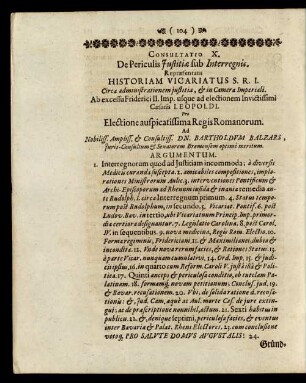 ( 104 )
CONSULTATIO X.
De Periculis Justitiæ sub Interregnis.
Repræsentans
HISTORIAM VICARIATUS S. R. I.
Circa administrationem justitiæ, & in Camera Imperiali,
Ab excessu Friderici II. Imp. usque ad electionem Invictissimi
Cæsaris LEOPOLDI.
Pro
Electione auspicatissima Regis Romanorum.
Ad
Nobiliss. Ampliss. & Consultiss. DN. BARTHOLDUM BALZARS,
Juris-Consultum & Senatorem Bremensem optimè meritum.
ARGUMENTUM.
1. Interregnorum quod ad Justitiam incommoda: à diversis
Medicis curanda suscepta. 2. amicabiles compositiones, implo-
rationes Ministrorum Aulæ. 3. interventiones Pontificum &
Archi-Episcoporum ad Rhenum cassa & inania remedia an-
te Rudolph. I. circa Interregnum primum. 4. Status tempo-
rum post Rudolphum, in secundo. 5. Vicariat. Pontif. 6. post
Ludov. Bav. in tertio, ubi Vicariatuum Princip. Imp. primor-
dia certiora designantur. 7. Legislatio Carolina. 8. post Carol.
IV. in sequentibus. 9. nova medicina, Regis Rom. Electio. 10.
Forma regiminis, Friderici tum II. & Maximiliani, dubia &
incondita. 12. Unde novæ rerum facies, & Rationes Status. 13.
à parte Vicar. nunquam cumulativi, 14. Ord. Imp. 15. & Ju-
dicii ipsius, 16. in quarto cum Reform. Caroli V. justitiæ & Po-
litica 17. Quinti anceps & periculosa conditio, ob tutelam Pa-
latinam. 18. formamq; novam petitionum. Conclus. jud. 19.
& Bavar. recusationem. 20. Ubi, de solidatione à recusa-
tionis: &, Jud. Cam. apud ac Aul. marte Cæs. de jure extin-
gui: ac de præscriptione non nihil, actum. 21. Sexti habitu in
publico. 22. &, denique septimi, periculosæ fastes, & eventus
inter Bavaria & Palat. Rheni Electores. 23. cum conclusione
votoq; PRO SALUTE DOMUS AUGUSTALIS! 24.
Gründ-